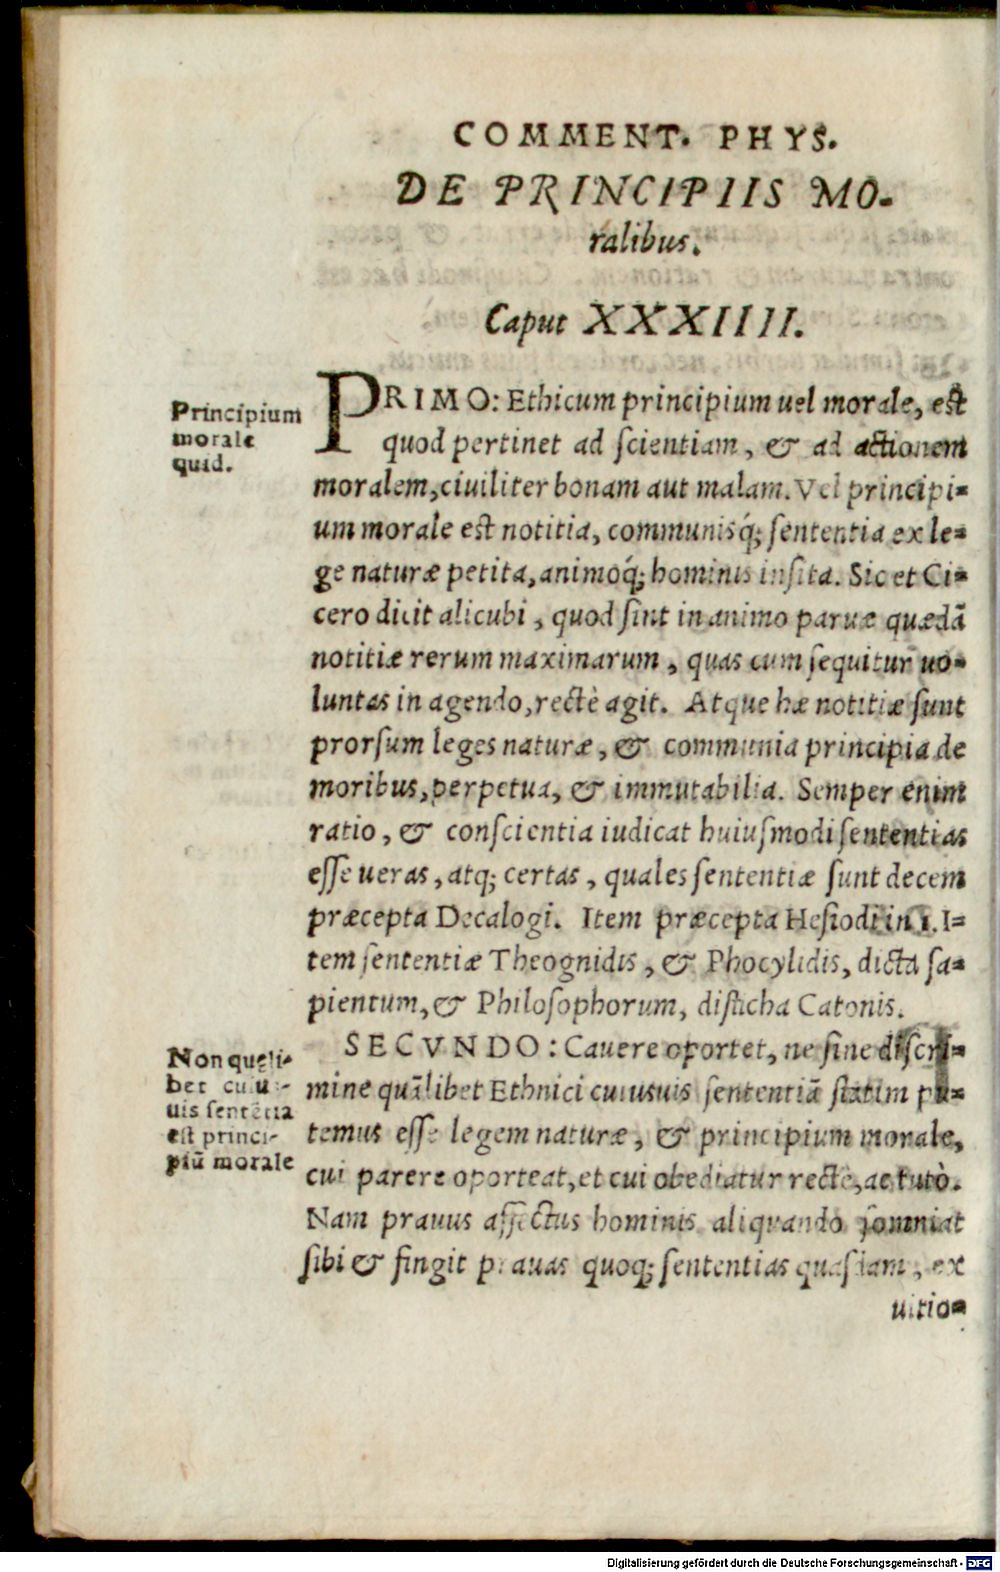 COMMENT. PHYS.
DE PRINCIPIIS MO-
ralibus.
Caput XXXIIII.
Principium
morale
quid.
PRIMO: Ethicum principium uel morale, est
quod pertinet ad scientiam, & ad actionem
moralem, ciuiliter bonam aut malam. Vel principi-
um morale est notitia, communisq́; sententia ex le-
ge naturæ petita, animoq́; hominis insita. Sic et Ci-
cero dicit alicubi, quod sint in animo paruæ quædā
notitiæ rerum maximarum, quas cum sequitur uo-
luntas in agendo, rectè agit. Atque hæ notitiæ sunt
prorsum leges naturæ, & communia principia de
moribus, perpetua, & immutabilia. Semper enim
ratio, & conscientia iudicat huiusmodi sententias
esse ueras, atq; certas, quales sententiæ sunt decem
præcepta Decalogi. Item præcepta Hesiodi in 1. I-
tem sententiæ Theognidis, & Phocylidis, dicta sa-
pientum, & Philosophorum, disticha Catonis.
Non queli-
bet cuiu-
uis sentētia
est princi-
piū morale
SECVNDO: Cauere oportet, ne sine discri-
mine quālibet Ethnici cuiusuis sententiā statim pu-
temus esse legem naturæ, & principium morale,
cui parere oporteat, et cui obediatur rectè, ac tutò.
Nam prauus affectus hominis aliquando somniat
sibi & fingit prauas quoq; sententias quasdam, ex
uitio-
Digitalisierung gefördert durch die Deutsche Forschungsgemeinschaft - DFG